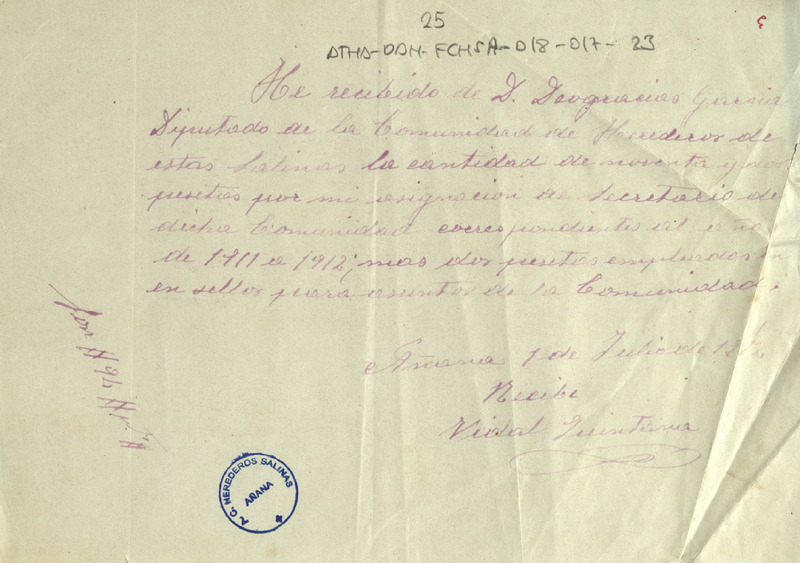 25
ATHA-DAH-FCHSA-018-017-23
He recibido de D. Deogracias Garcia
Diputado de la Comunidad de Herederos de
estas Salinas la cantidad de noventa y dos
pesetas por mi asignacion de Secretario de
dicha Comunidad correspondiente al año
de 1911 a 1912; mas dos pesetas empleadas en
en sellos para asuntos de la Comunidad.
Añana 1 de Julio de
Recibi
Vidal Quintana
Son
A. G. HEREDEROS SALINAS
AÑANA